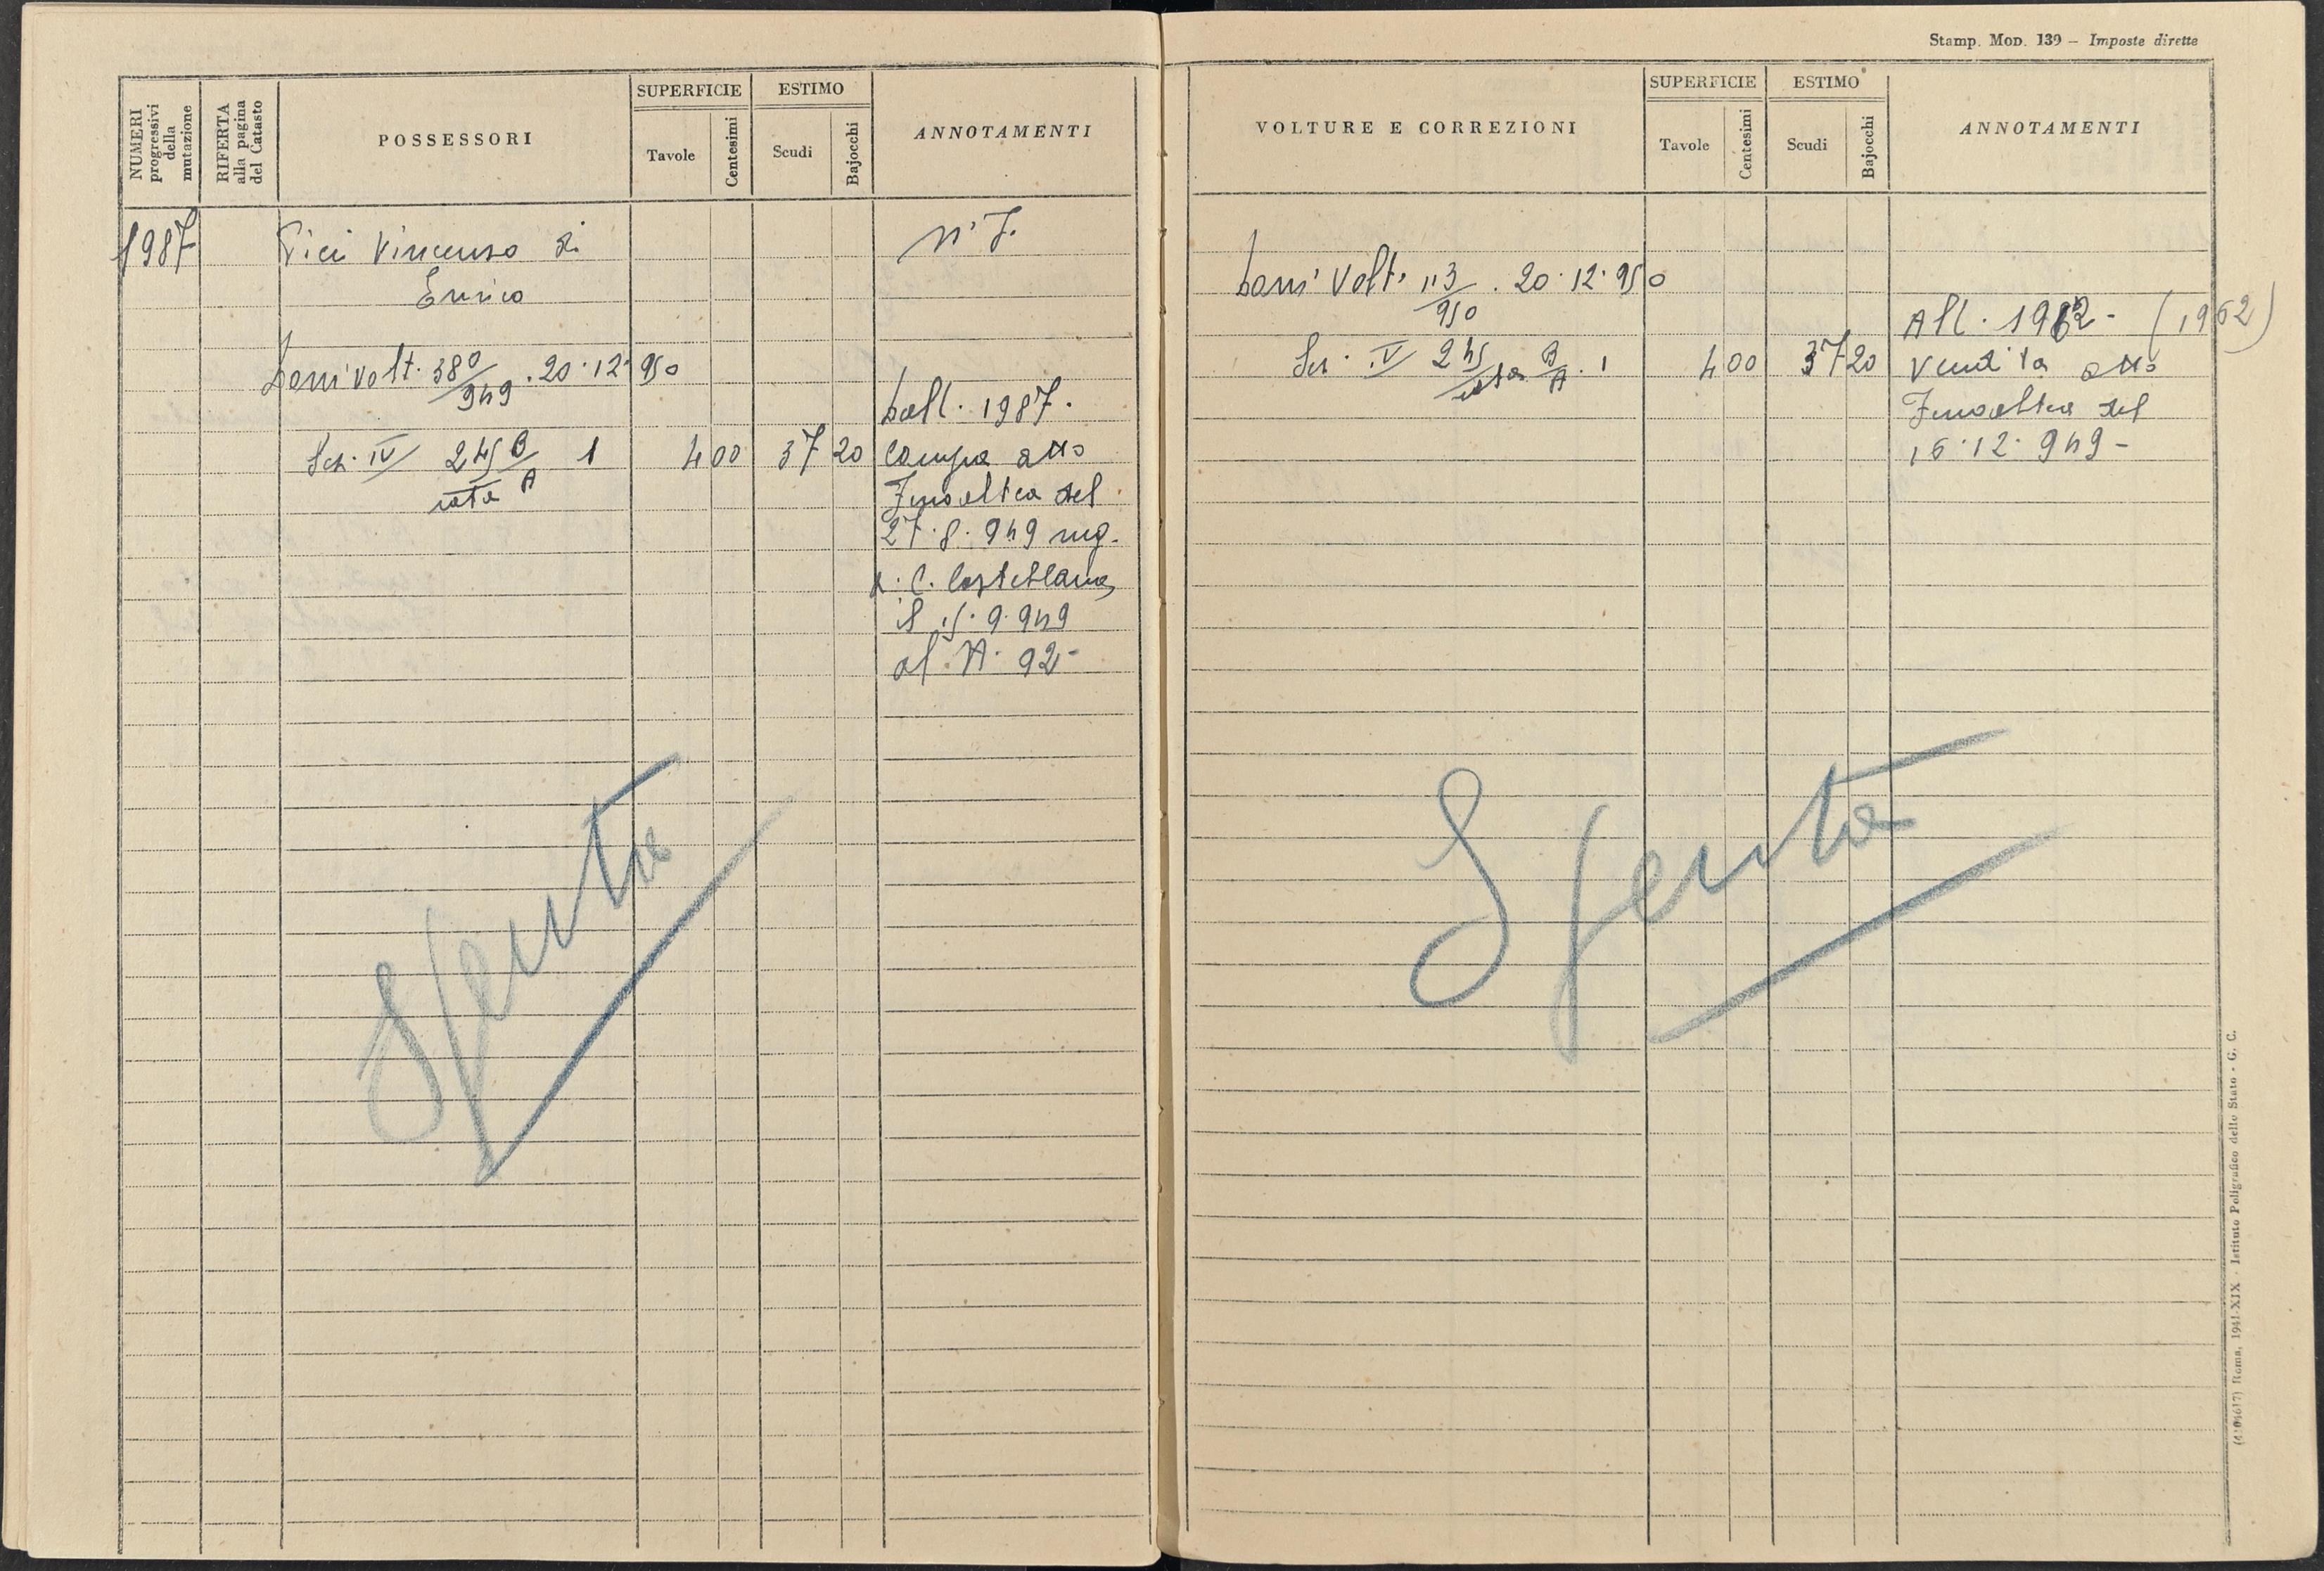 NUMERI progressivi della mutazione
RIFERTA alla pagina del Catasto
POSSESSORI
SUPERFICIE
Tavole
Centesimi
ESTIMO
Scudi
Bajocchi
ANNOTAMENTI
1987
Vincenzo di
n° 7.
Enrico
volt. 380/949 . 20.12.950
1987.
Sez. IV 245 B/A 1
rata
4 00
37 20
Compra atto
del
27.8.949 reg.
C. Castellana
il 15.9.949
al N. 92-
Spenta
Stamp. Mod. 139 — Imposte dirette
VOLTURE E CORREZIONI
SUPERFICIE
Tavole
Centesimi
ESTIMO
Scudi
Bajocchi
ANNOTAMENTI
Volt. 113/950 . 20.12.950
All. 1962 - (1962)
Sez. IV 245 rata B/A . 1
4 00
37 20
Vendita atto
del
16.12.949-
Spenta
Roma, 1941-XIX - Istituto Poligrafico dello Stato - G. C.